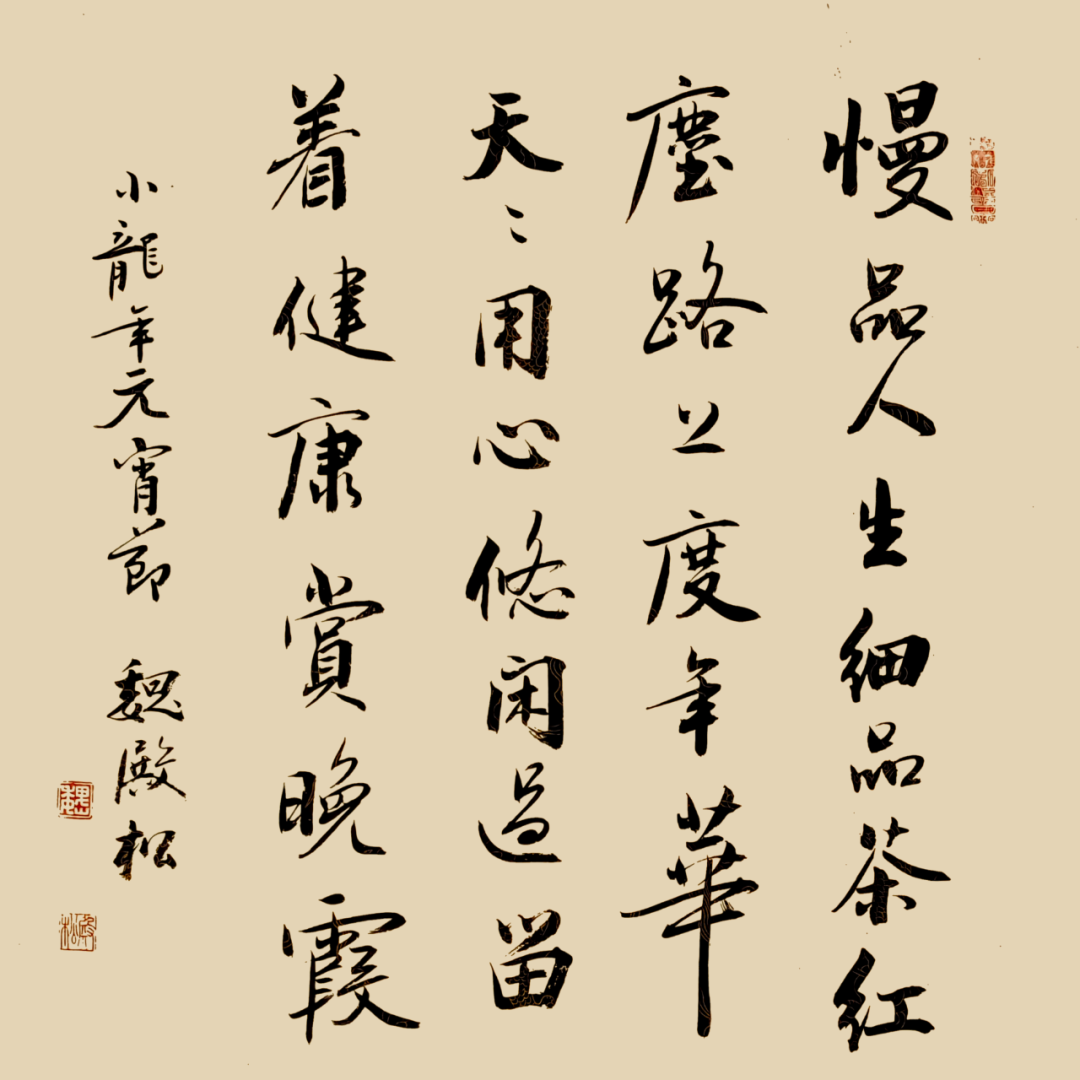 慢品人生细品茶红
塵路上度年華
天〻用心悠闲過留
着健康賞晚霞
小龍年元宵節 魏殿松
魏
殿松